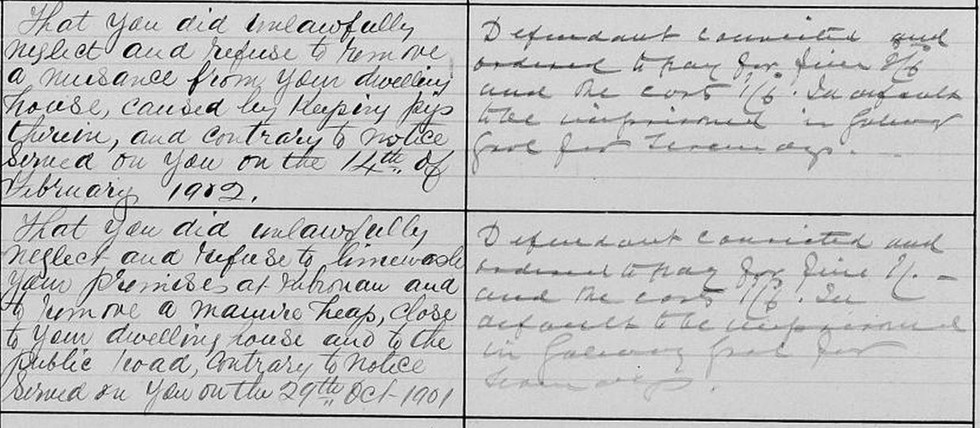 That you did unlawfully
neglect and refuse to remove
a nuisance from your dwelling
house, caused by keeping pigs
therein, and contrary to notice
Served on you on the 14th of
February 1902.
Defendant convicted and
ordered to pay for fine 2/6
and the costs 1/6. In default
to be imprisoned in Galway
Gaol for Seven days.
That you did unlawfully
neglect and refuse to limewash
your premises at and
to remove a manure heap, close
to your dwelling house and to the
public road, contrary to notice
Served on you on the 29th Oct 1901
Defendant convicted and
ordered to pay for fine 1/-
and the costs 1/6. In
default to be imprisoned
in Galway Gaol for
Seven days.